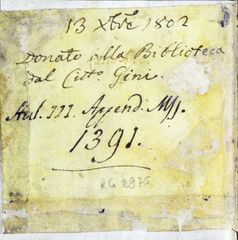 13 Xbre 1802
Donato alla Biblioteca
dal Citto. Gini.
Aul. III. Append. Mſſ.
1391.
RG 2975